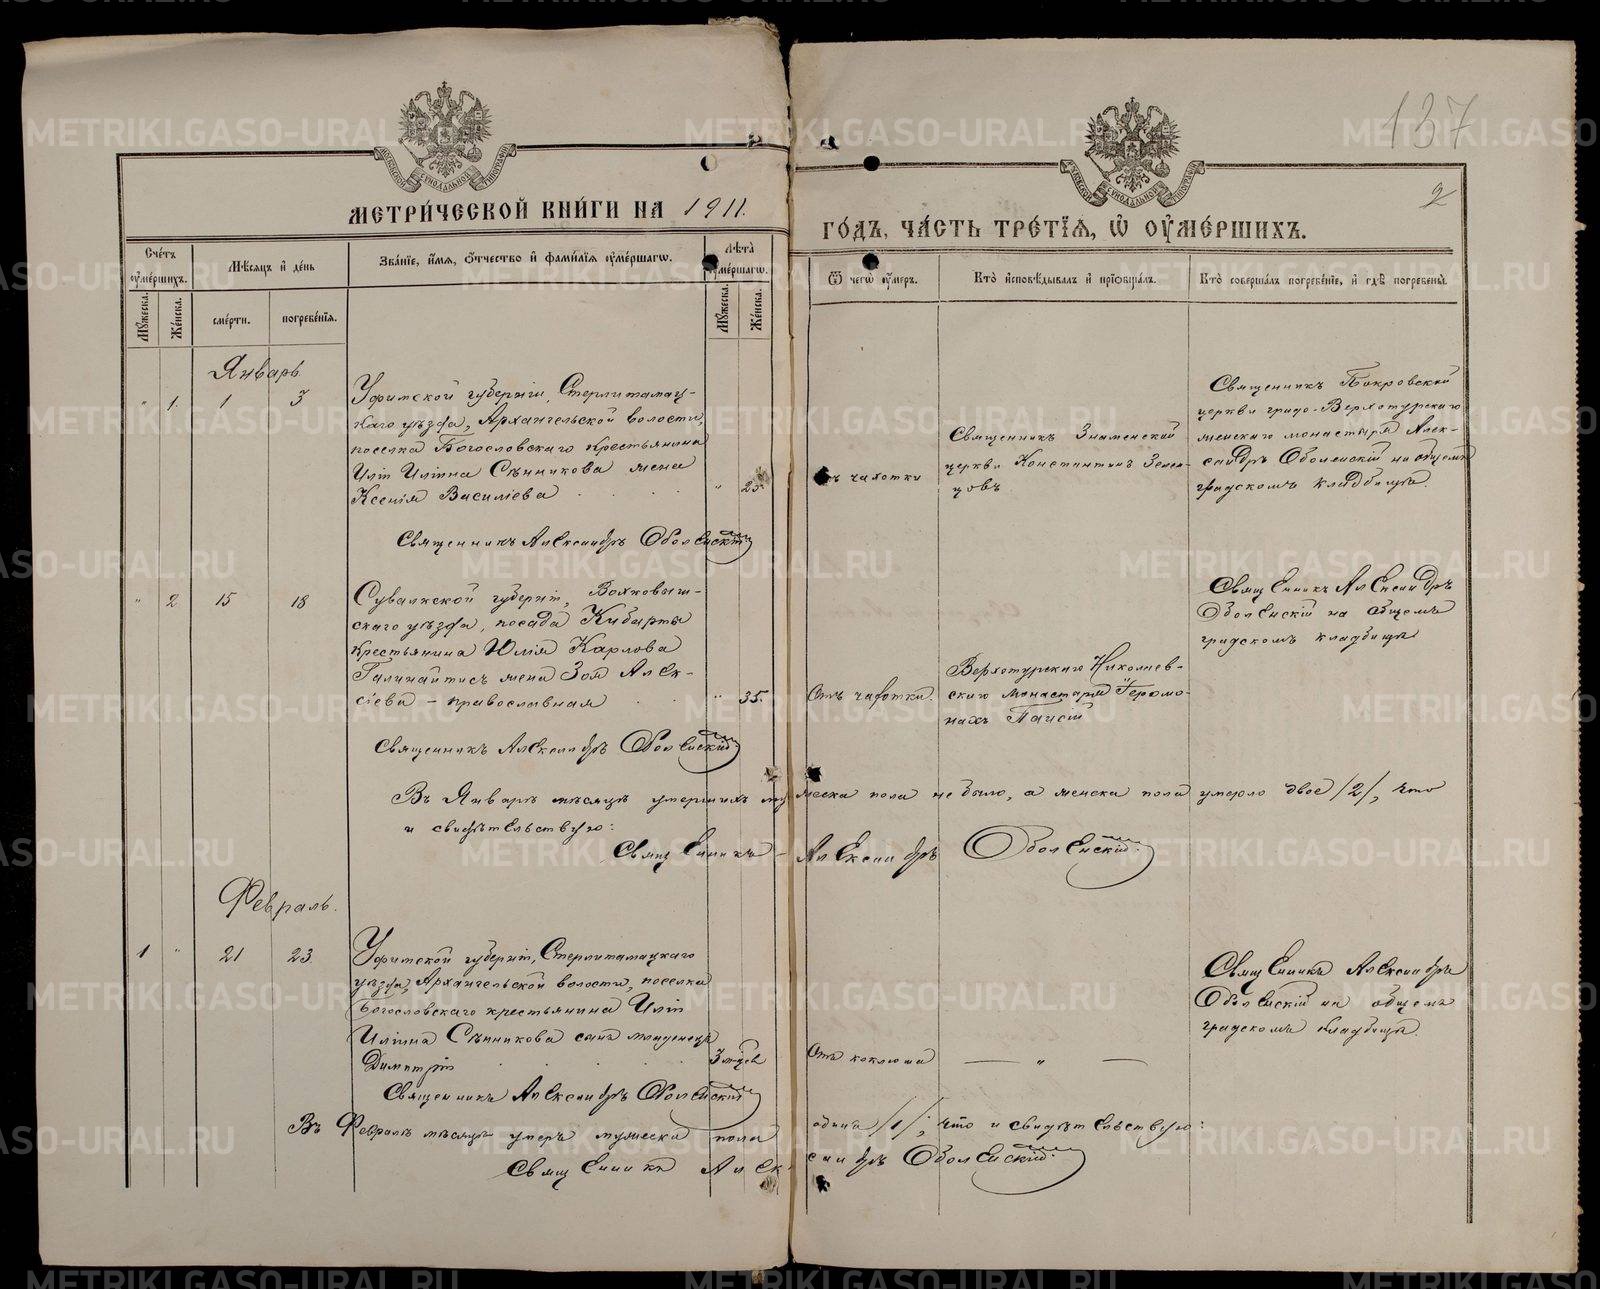 METRIKI.GASO-URAL.RU
137
2
МЕТРИ́ЧЕСКОЙ КНИ́ГИ НА 1911.
ГО́ДЪ, ЧА́СТЬ ТРЕ́ТЇѦ, Ѡ҆ ОУ҆МЕ́РШИХЪ.
Сче́тъ оу҆ме́ршихъ.
Мꙋ́жеска.
Же́нска.
Мѣ́сяцъ и҆ де́нь
сме́рти.
погребе́нїѧ.
Зва́нїе, и҆́мѧ, ѻ҆́тчество и҆ фами́лїѧ оу҆ме́ршагѡ.
Лѣ́та оу҆ме́ршагѡ.
Мꙋ́жеска.
Же́нска.
Ѿ чегѡ̀ оу҆́меръ.
Кто̀ и҆сповѣ́дывалъ и҆ прїѡбща́лъ.
Кто̀ соверша́лъ погребе́нїе, и҆ гдѣ̀ погребены̀.
Январь
" 1. 1 3
Уфимской губернiи, Стерлитамац-
каго уѣзда, Архангельской волости,
поселка Богословскаго крестьянина
Илiи Илiина Сѣнникова жена
Ксенiя Василiева
" 25.
отъ чахотки
Священникъ Знаменской
церкви Константинъ Земен-
цовъ
Священникъ Покровской
церкви градо-Верхотурскаго
женскаго монастыря Алек-
сандръ Оболенскiй на общемъ
градскомъ кладбищѣ.
Священникъ Александръ Оболенскiй
" 2 15 18
Сувалкской губернiи, Волковыш-
скаго уѣзда, посада Кибарты
крестьянина Юлiя Карлова
Галинайтисъ жена Зоя Алек-
сiева – православная
" 35.
Отъ чахотки.
Верхотурскаго Николаев-
скаго монастыря Iеромо-
нахъ Паисiй
Священникъ Александръ
Оболенскiй на общемъ
градскомъ кладбищѣ
Священникъ Александръ Оболенскiй
Въ Январѣ мѣсяцѣ умершихъ мужеска пола не было, а женска пола умерло двое /2/, что
и свидѣтельствую:
Священникъ – Александръ Оболенскiй
Февраль.
1 " 21 23
Уфимской губернiи, Стерлитамацкаго
уѣзда, Архангельской волости, поселка
Богословскаго крестьянина Илiи
Илiина Сѣнникова сынъ младенецъ
Димитрiй
3 м-цев
Отъ коклюша
— " —
Священникъ Александръ
Оболенскiй на общемъ
градскомъ кладбищѣ.
Священникъ Александръ Оболенскiй
Въ Февралѣ мѣсяцѣ умеръ мужеска пола одинъ /1/, что и свидѣтельствую:
Священникъ Александръ Оболенскiй